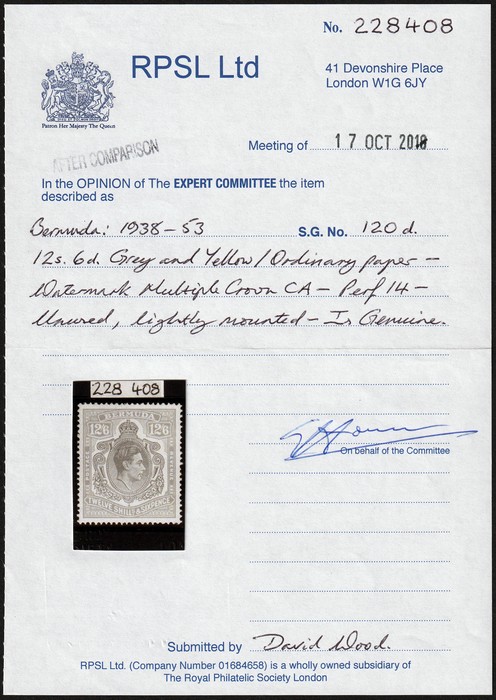 No. 228408
RPSL Ltd
41 Devonshire Place
London W1G 6JY
Patron Her Majesty The Queen
Meeting of 17 OCT 2018
AFTER COMPARISON
In the OPINION of The EXPERT COMMITTEE the item
described as
Bermuda: 1938-53 S.G. No. 120d.
12s. 6d. Grey and Yellow/Ordinary paper -
Watermark Multiple Crown CA - Perf 14 -
Unused, lightly mounted - Is Genuine.
228 408
BERMUDA
12/6 12/6
TWELVE SHILLS & SIXPENCE
On behalf of the Committee
Submitted by David Wood.
RPSL Ltd. (Company Number 01684658) is a wholly owned subsidiary of
The Royal Philatelic Society London